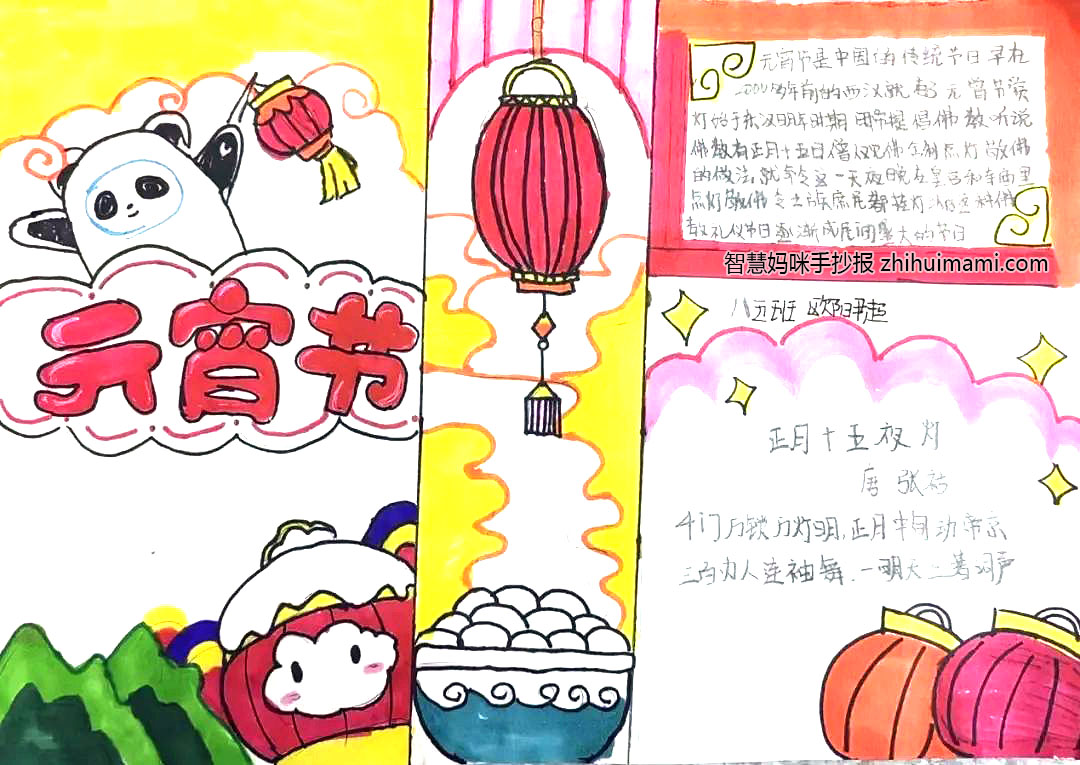 元宵节
元宵节是中国的传统节日早在
2000多年前的西汉就有了元宵节赏
灯始于东汉明帝时期 明帝提倡佛教听说
佛教有正月十五日僧人观佛 点灯敬佛
的做法 就命令这一天夜晚在皇宫和寺庙里
点灯敬佛 令士族庶民都挂灯 这种佛
教礼仪节日逐渐成民间盛大的节日
智慧妈咪手抄报 zhihuimami.com
八五班 欧阳
正月十五夜灯
唐 张祜
千门万锁万灯明,正月中旬动帝京
三百人连袖舞.一 天上著词声